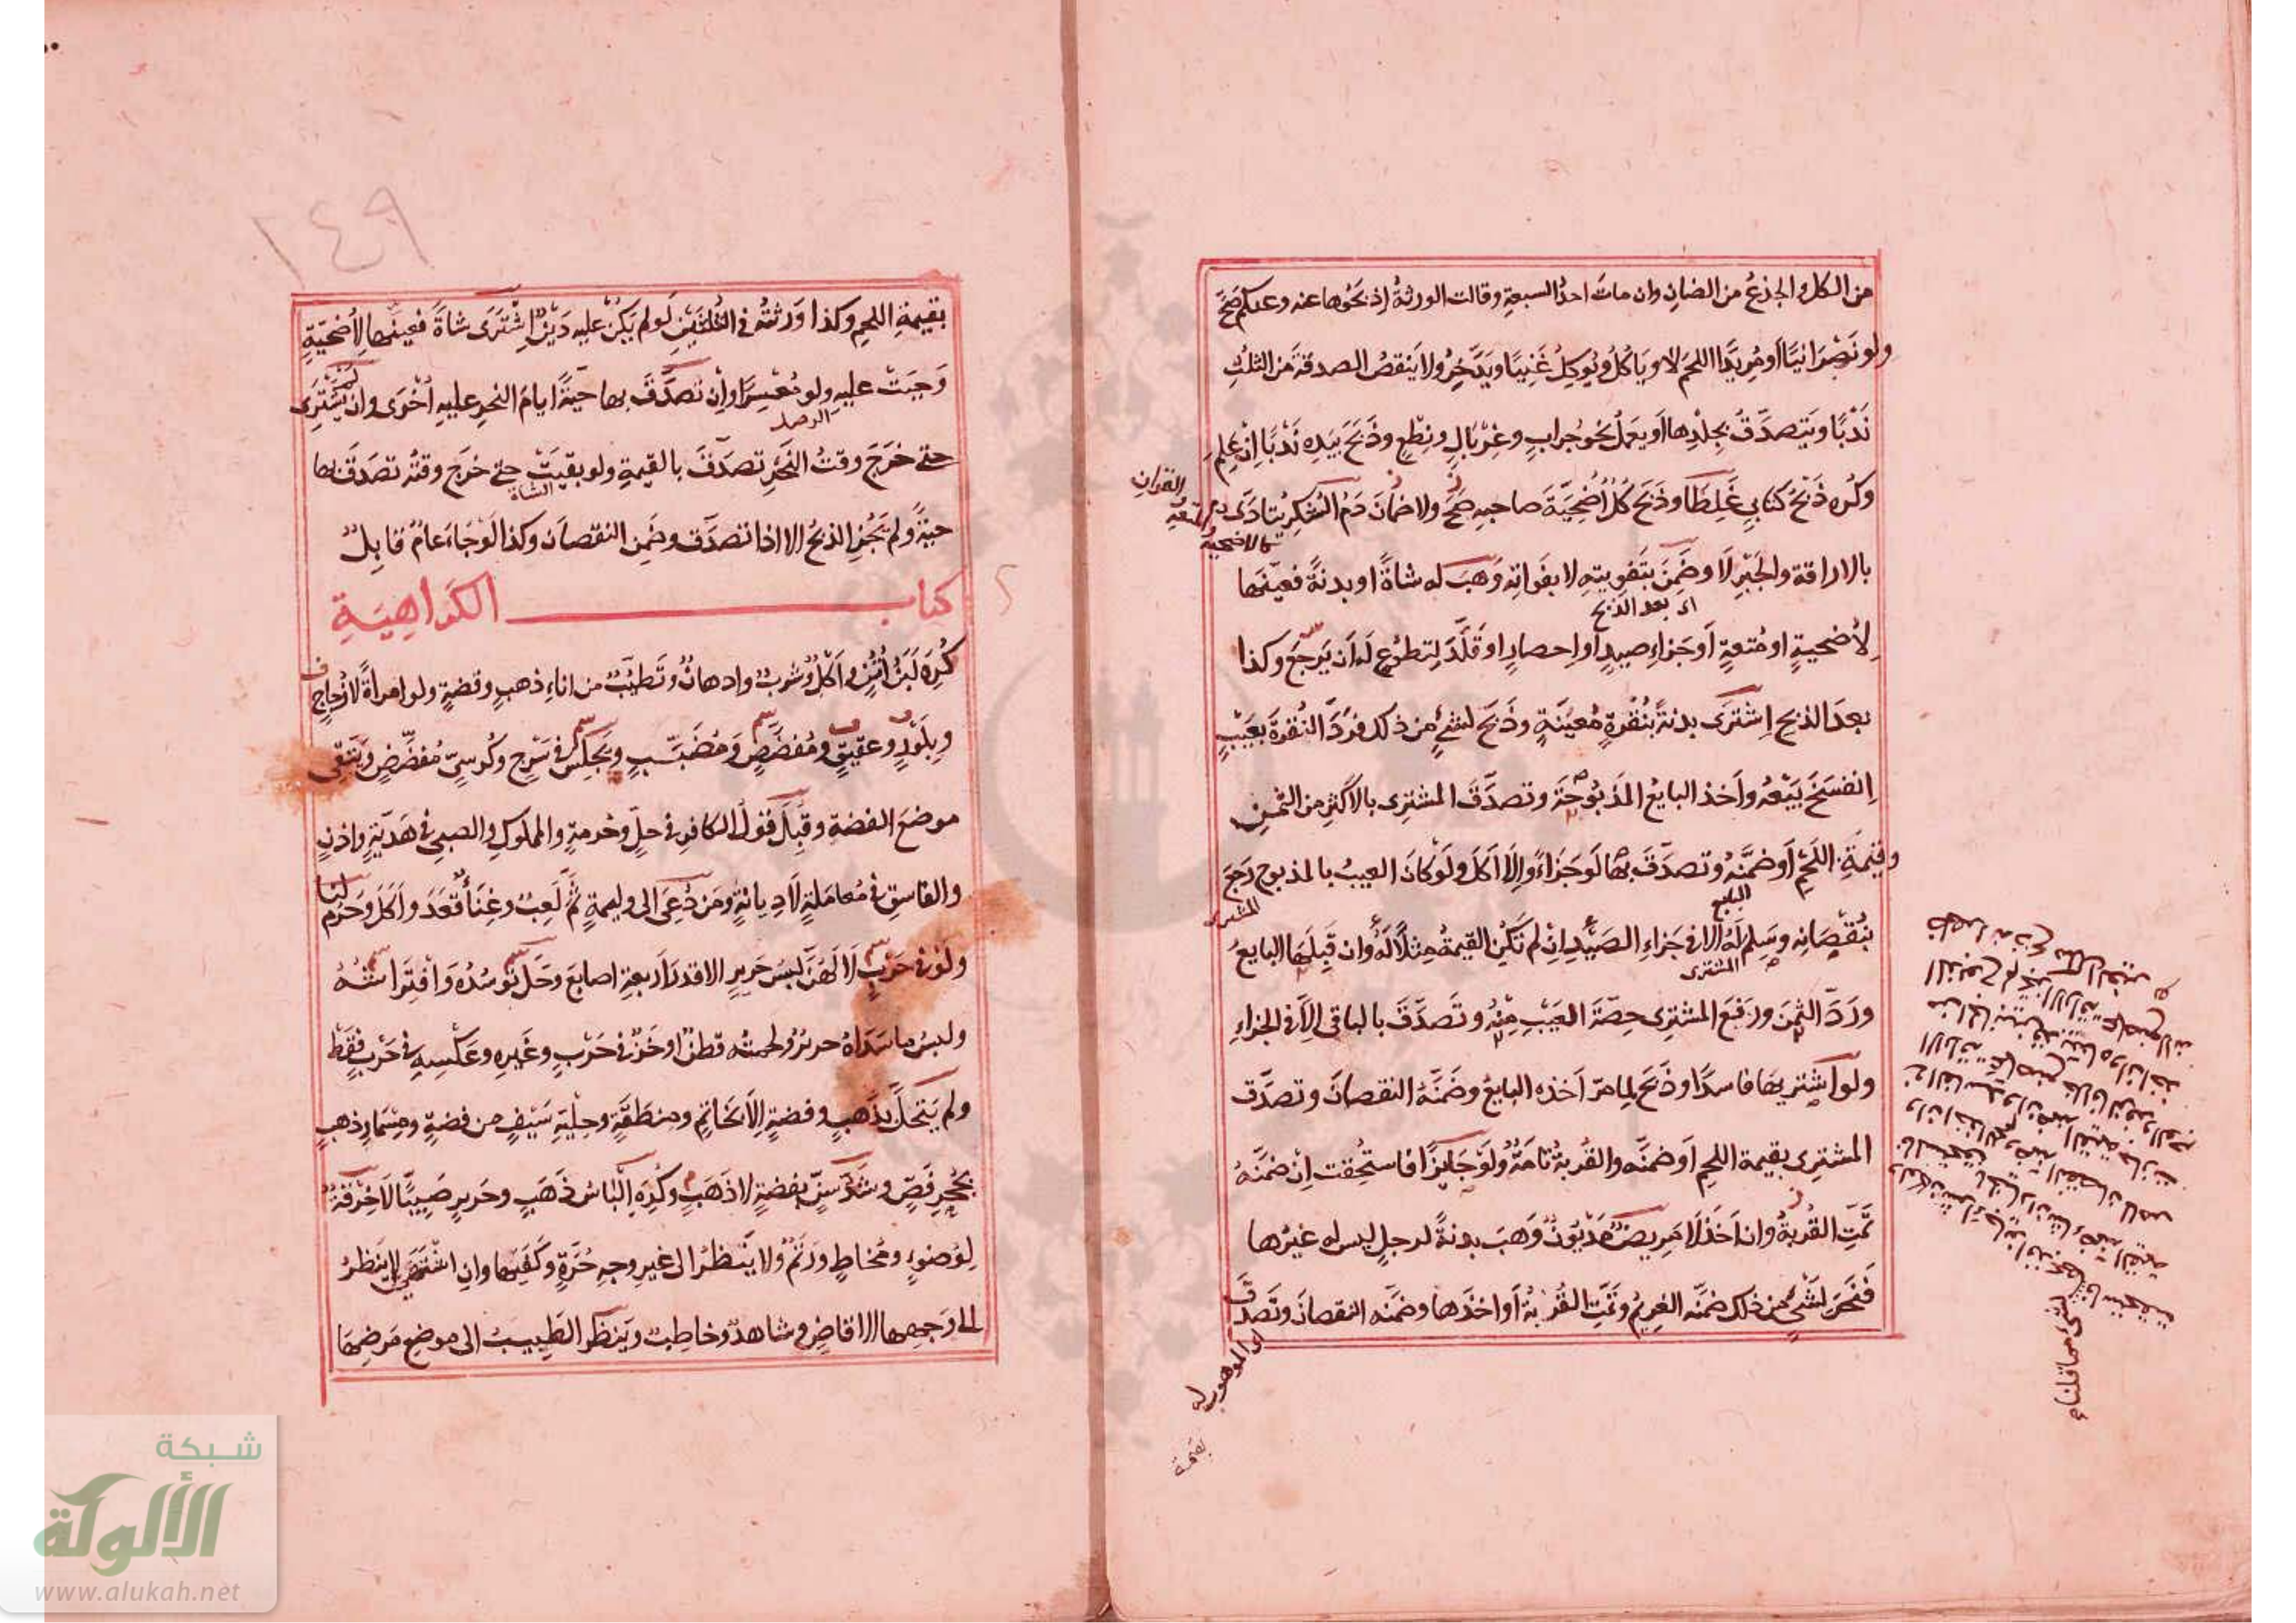 من الكل والجذع من الضان وان مات احد السبعة وقالت الورثة إذبحوها عنه وعنكم صَحَّ
ولو نصرانيا أو مريدا اللحم لا ويأكل ويوكل غنيا ويدّخر ولا ينقص الصدقة من الثلث
ندبا ويتصدق بجلدها أو يعمل نحو جراب وغربال ونطع وذبح بيده ندبا إن علم
وكره ذبح كتابي غلطا وذبح كل أضحية صاحبه صح ولا ضمان دم الشكر يتادى
القران
والمتعة
كالاضحية
بالاراقة والجبر لا وضمن بتفويته لا بفواته وهب له شاة او بدنة فعينها
اى بعد الذبح
لأضحية او متعة أو جزاء صيد أو احصار او قلد لتطوع له أن يرجع وكذا
بعد الذبح إشترى بدنة بنقرة معينة وذبح لشئ من ذلك فرد النقرة بعيب
إنفسخ بيعه وأخذ البايع المذبوحة وتصدق المشترى بالأكثر من الثمن
وقيمة اللحم أو ضمنه وتصدق بها لو جزاء وإلا اكل ولو كان العيب بالمذبوح رجع
المشترى
البايع
بنقصانه وسلم له الا في جزاء الصيد إن لم تكن القيمة مثلا له وان قبلها البايع
المشترى
ورد الثمن ورفع المشترى حصة العيب منه وتصدق بالباقى الا فى الجزاء
ولو اشتريها فاسدا وذبح لما مر أخذه البايع وضمنه النقصان وتصدق
المشترى بقيمة اللحم أو ضمنه والقربة تامة ولو جايزا فاستحقت إن ضمنه
تمت القربة وان أخذ لا مريض مديون وهب بدنة لرجل ليس له غيرها
فنحر لشئ من ذلك ضمنه الغريم وتمت القربة أو اخذها وضمنه النقصان وتصدق
اى الموهوب له
بقيمة
١٤٩
بقيمة اللحم وكذا ورثته فى الثلثين لو لم يكن عليه دين إشترى شاة فعينها لأضحية
وجبت عليه ولو معسرا وإن تصدق بها حية ايام النحر عليه أخرى وان لم يشترى
حتى خرج وقت النحر تصدق بالقيمة ولو بقيت حتى خرج وقته تصدق بها
الشاة
حية ولم يجز الذبح الا اذا تصدق وضمن النقصان وكذا لو جاء عام قابل
كتاب الكراهية
كره لبن أتن وأكل وشرب وادهان وتطيب من اناء ذهب وفضة ولو امراة لا زجاج
وبلور وعقيق ومفضض ومضبب ويجلس فى سرج وكرسى مفضض ويتقى
موضع الفضة وقبل قول الكافر فى حل وحرمة والمملوك والصبى فى هدية واذن
والفاسق فى معاملة لا ديانة ومن دعى الى وليمة ثم لعب وغناء قعد وأكل وحرم لنا
ولو فى حرب لا لهن لبس حرير الا قدر أربعة اصابع وحل توسده وافتراشه
ولبس ما سداه حرير ولحمته قطن او خز فى حرب وغيره وعكسه فى حرب فقط
ولم يتحل بذهب وفضة الا بخاتم ومنطقة وحلية سيف من فضة ومسمار ذهب
بحجر فص وشد سن بفضة لا ذهب وكره إلباس ذهب وحرير صبيا لا خرقة
لوضوء ومخاط ورتم ولا ينظر الى غير وجه حرة وكفيها وان اشتهى لا ينظر
الى وجهها الا قاض وشاهد وخاطب وينظر الطبيب الى موضع مرضها
شبكة
الألوكة
www.alukah.net